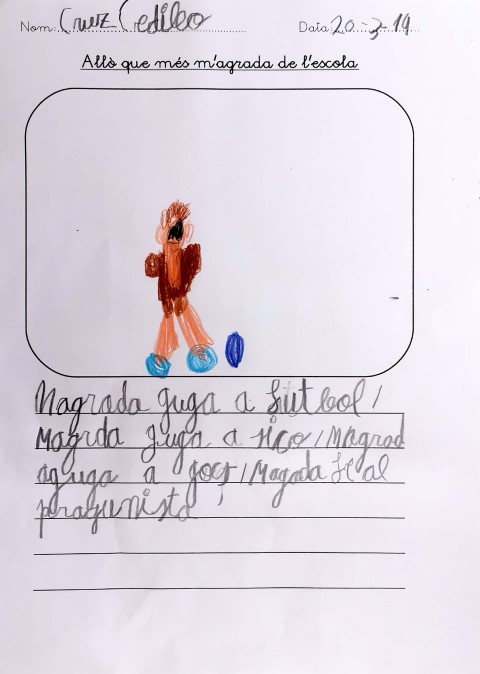 Nom: Cruz Cedillo Data: 20-3-19
Allò que més m'agrada de l'escola
Magrada guga a futbol /
Magrda guga a rico / Magrad
aguga a gocs / Magada fe al
pragunista